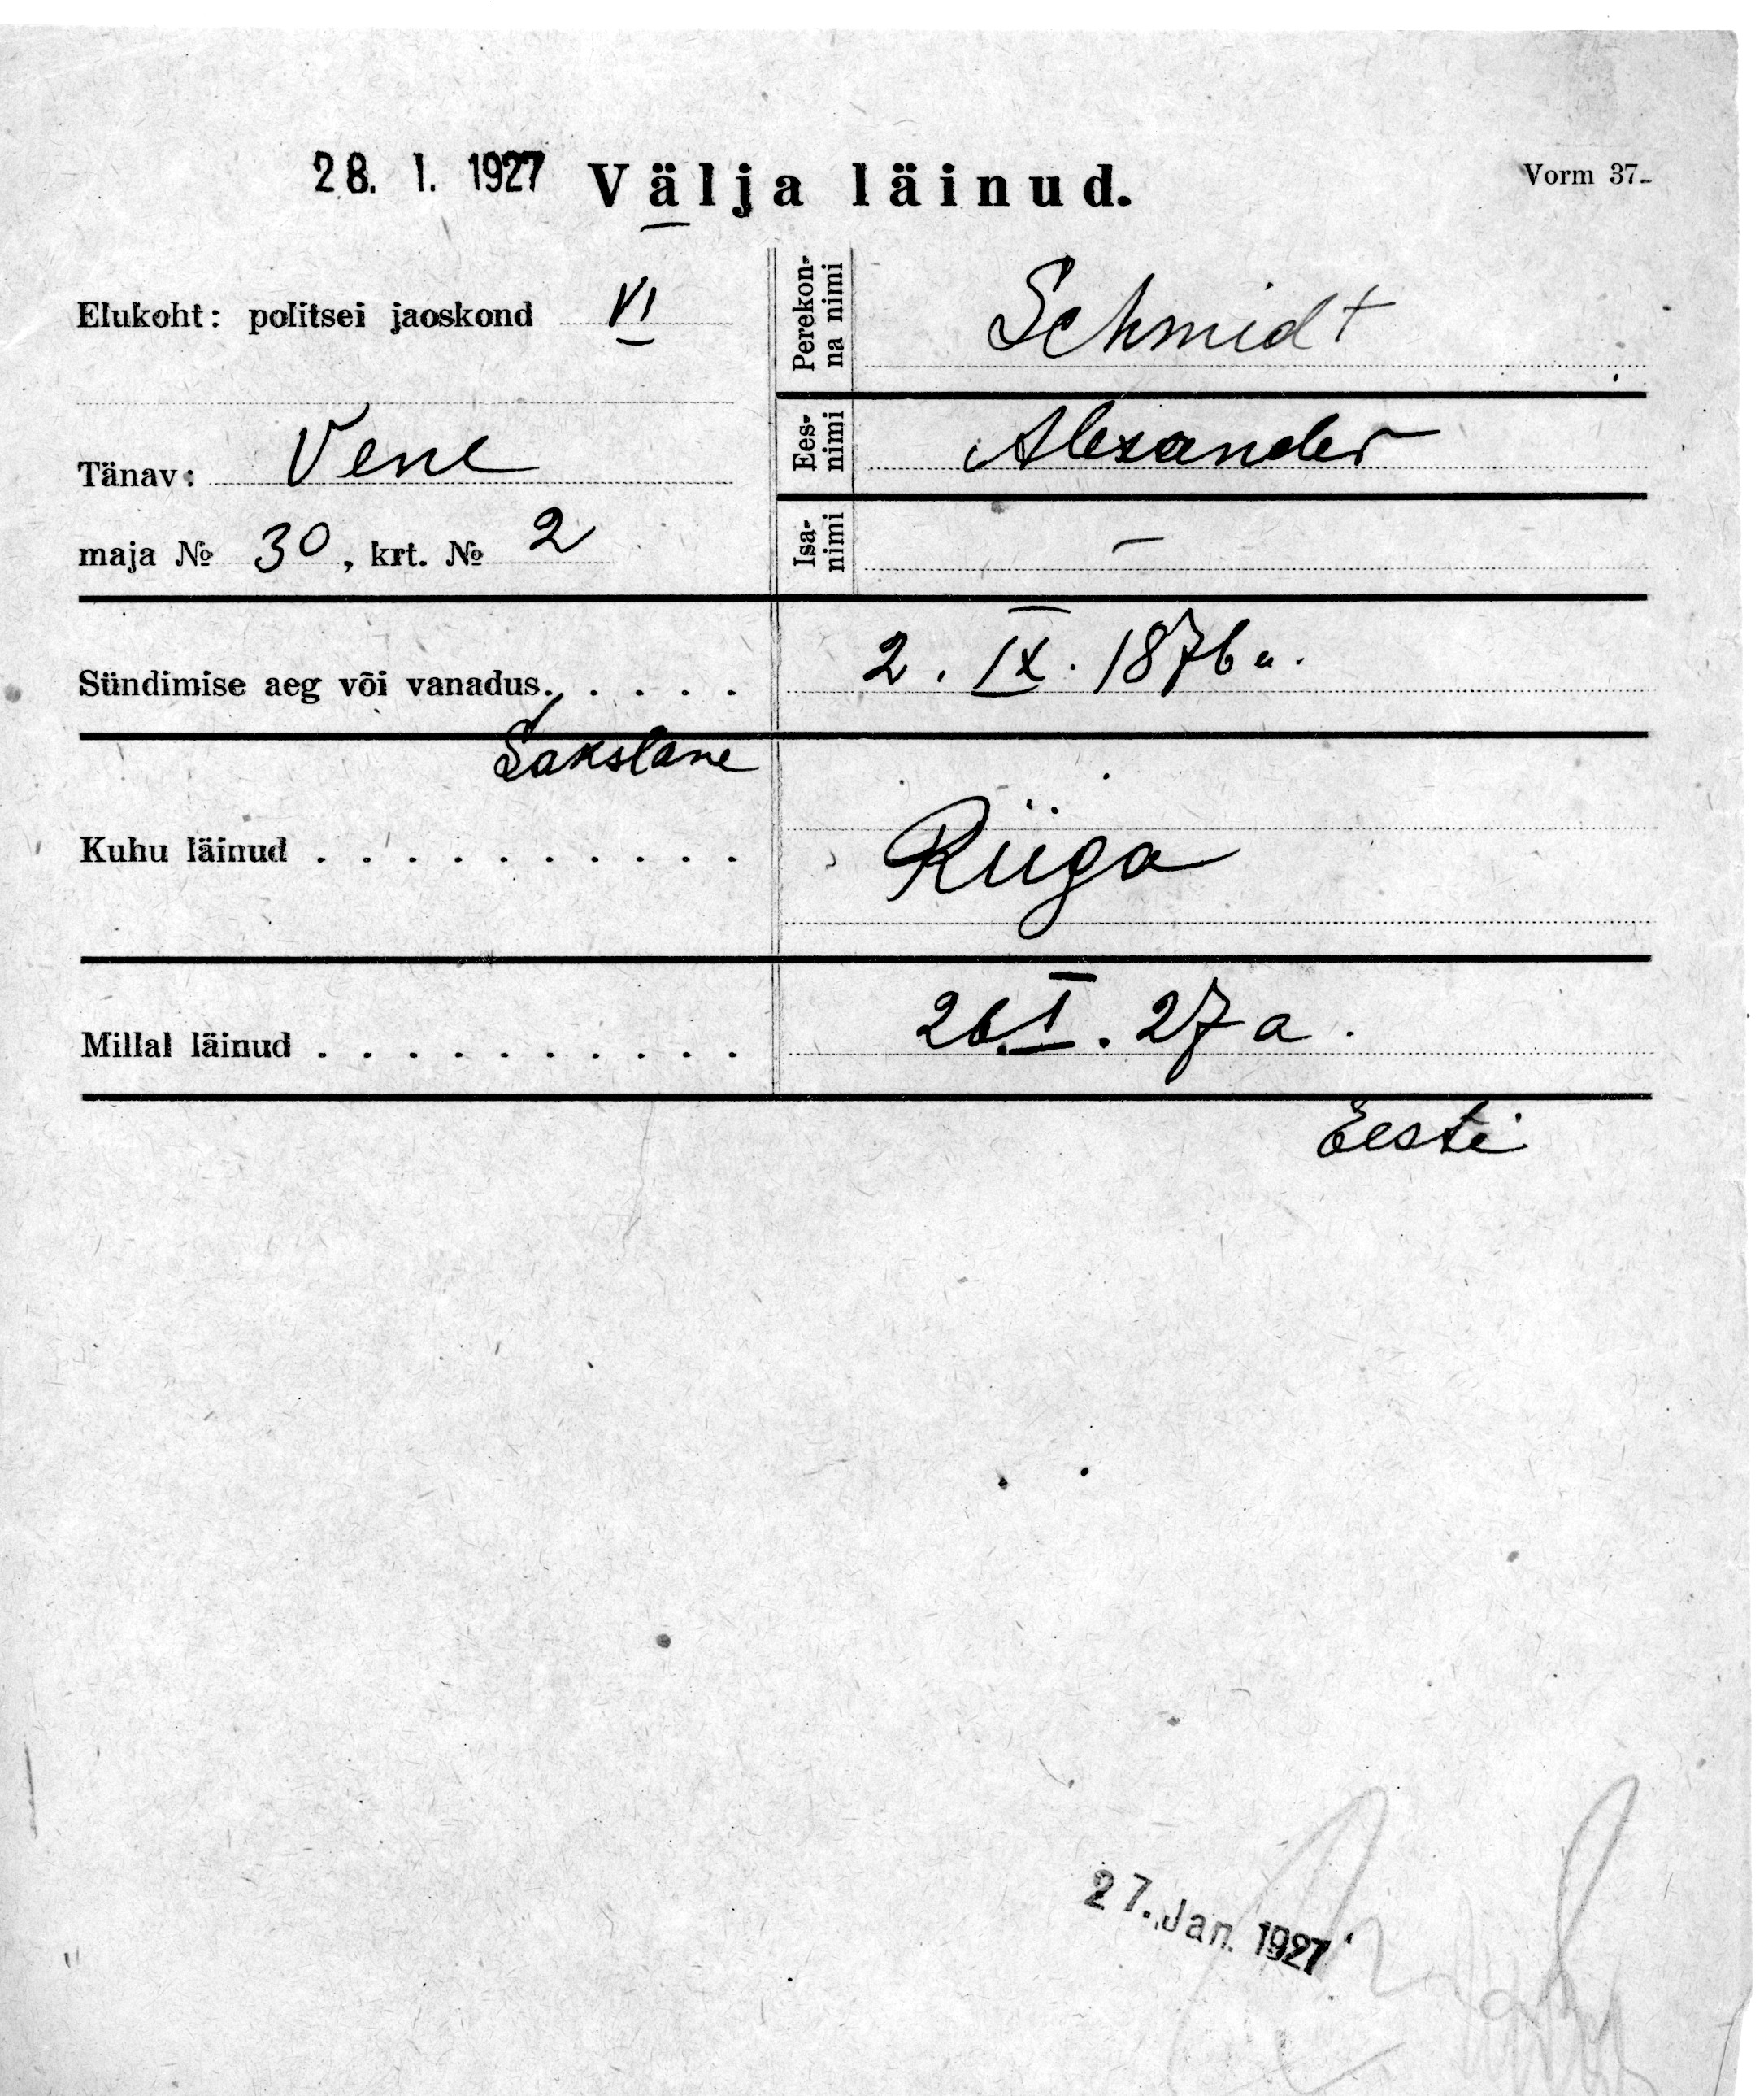 28. 1. 1927 Välja läinud. Vorm 37.
Elukoht: politsei jaoskond VI
Tänav: Vene
maja № 30, krt. № 2
Perekon-
na nimi Schmidt
Ees-
nimi Alexander
Isa-
nimi –
Sündimise aeg või vanadus. . . . . 2. IX. 1876 a.
Sakslane
Kuhu läinud . . . . . . . . . . Riiga
Millal läinud . . . . . . . . . . 26. I. 27 a.
Eesti
27. Jan. 1927